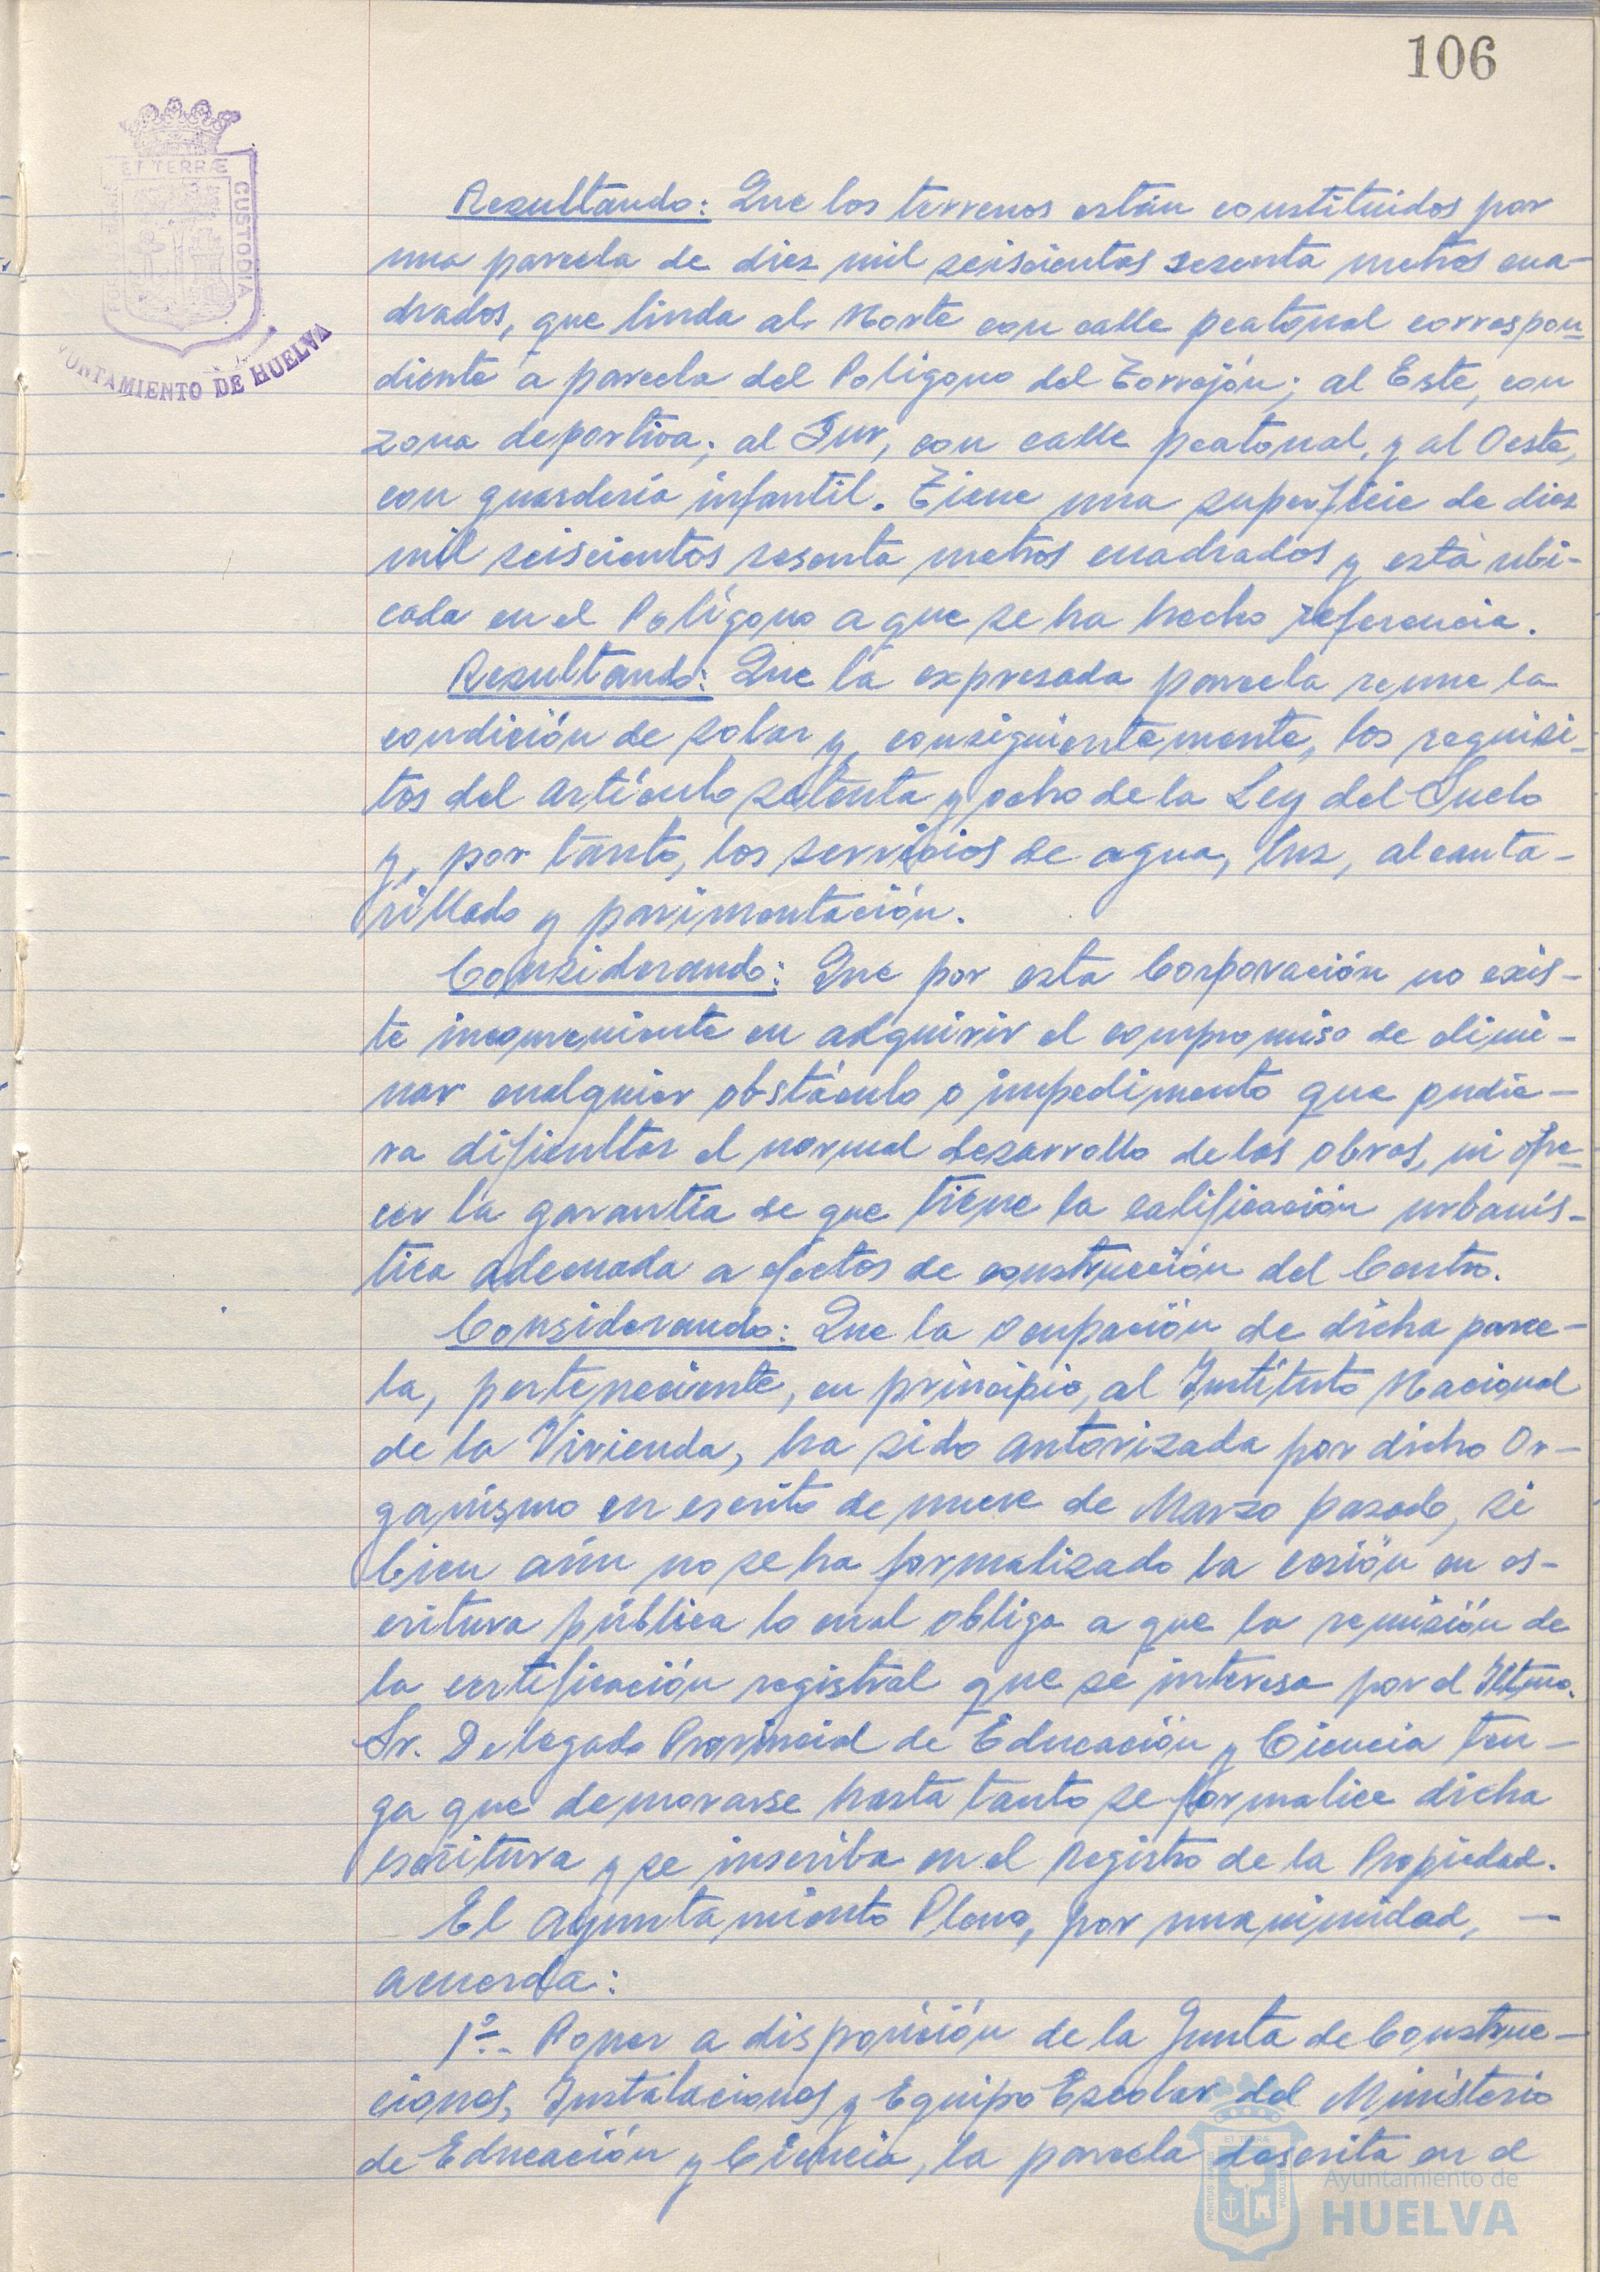 106
ET TERRÆ
CUSTODIA
AYUNTAMIENTO DE HUELVA
Resultando: Que los terrenos están constituidos por
una parcela de diez mil seiscientos sesenta metros cua-
drados, que linda al Norte con calle peatonal correspon-
diente a parcela del Poligono del Torrejón; al Este, con
zona deportiva; al Sur, con calle peatonal, y al Oeste,
con guardería infantil. Tiene una superficie de diez
mil seiscientos sesenta metros cuadrados y está ubi-
cada en el Polígono a que se ha hecho referencia.
Resultando: Que la expresada parcela reune la
condición de solar y, consiguientemente, los requisi-
tos del artículo setenta y ocho de la Ley del Suelo
y, por tanto, los servicios de agua, luz, alcanta-
rillado y pavimentación.
Considerando: Que por esta Corporación no exis-
te inconveniente en adquirir el compromiso de elimi-
nar cualquier obstáculo o impedimento que pudie-
ra dificultar el normal desarrollo de las obras, ni ofre-
cer la garantía de que tiene la calificación urbanís-
tica adecuada a efectos de construcción del Centro.
Considerando: Que la ocupación de dicha parce-
la, perteneciente, en principio, al Instituto Nacional
de la Vivienda, ha sido autorizada por dicho Or-
ganismo en escrito de nueve de Marzo pasado, si
bien aún no se ha formalizado la cesión en es-
critura pública lo cual obliga a que la remisión de
la certificación registral que se interesa por el Iltmo.
Sr. Delegado Provincial de Educación y Ciencia ten-
ga que demorarse hasta tanto se formalice dicha
escritura y se inscriba en el Registro de la Propiedad.
El Ayuntamiento Pleno, por unanimidad, —
acuerda:
1º.- Poner a disposición de la Junta de Construc-
ciones, Instalaciones y Equipo Escolar del Ministerio
de Educación y Ciencia, la parcela descrita en el
Ayuntamiento de
HUELVA